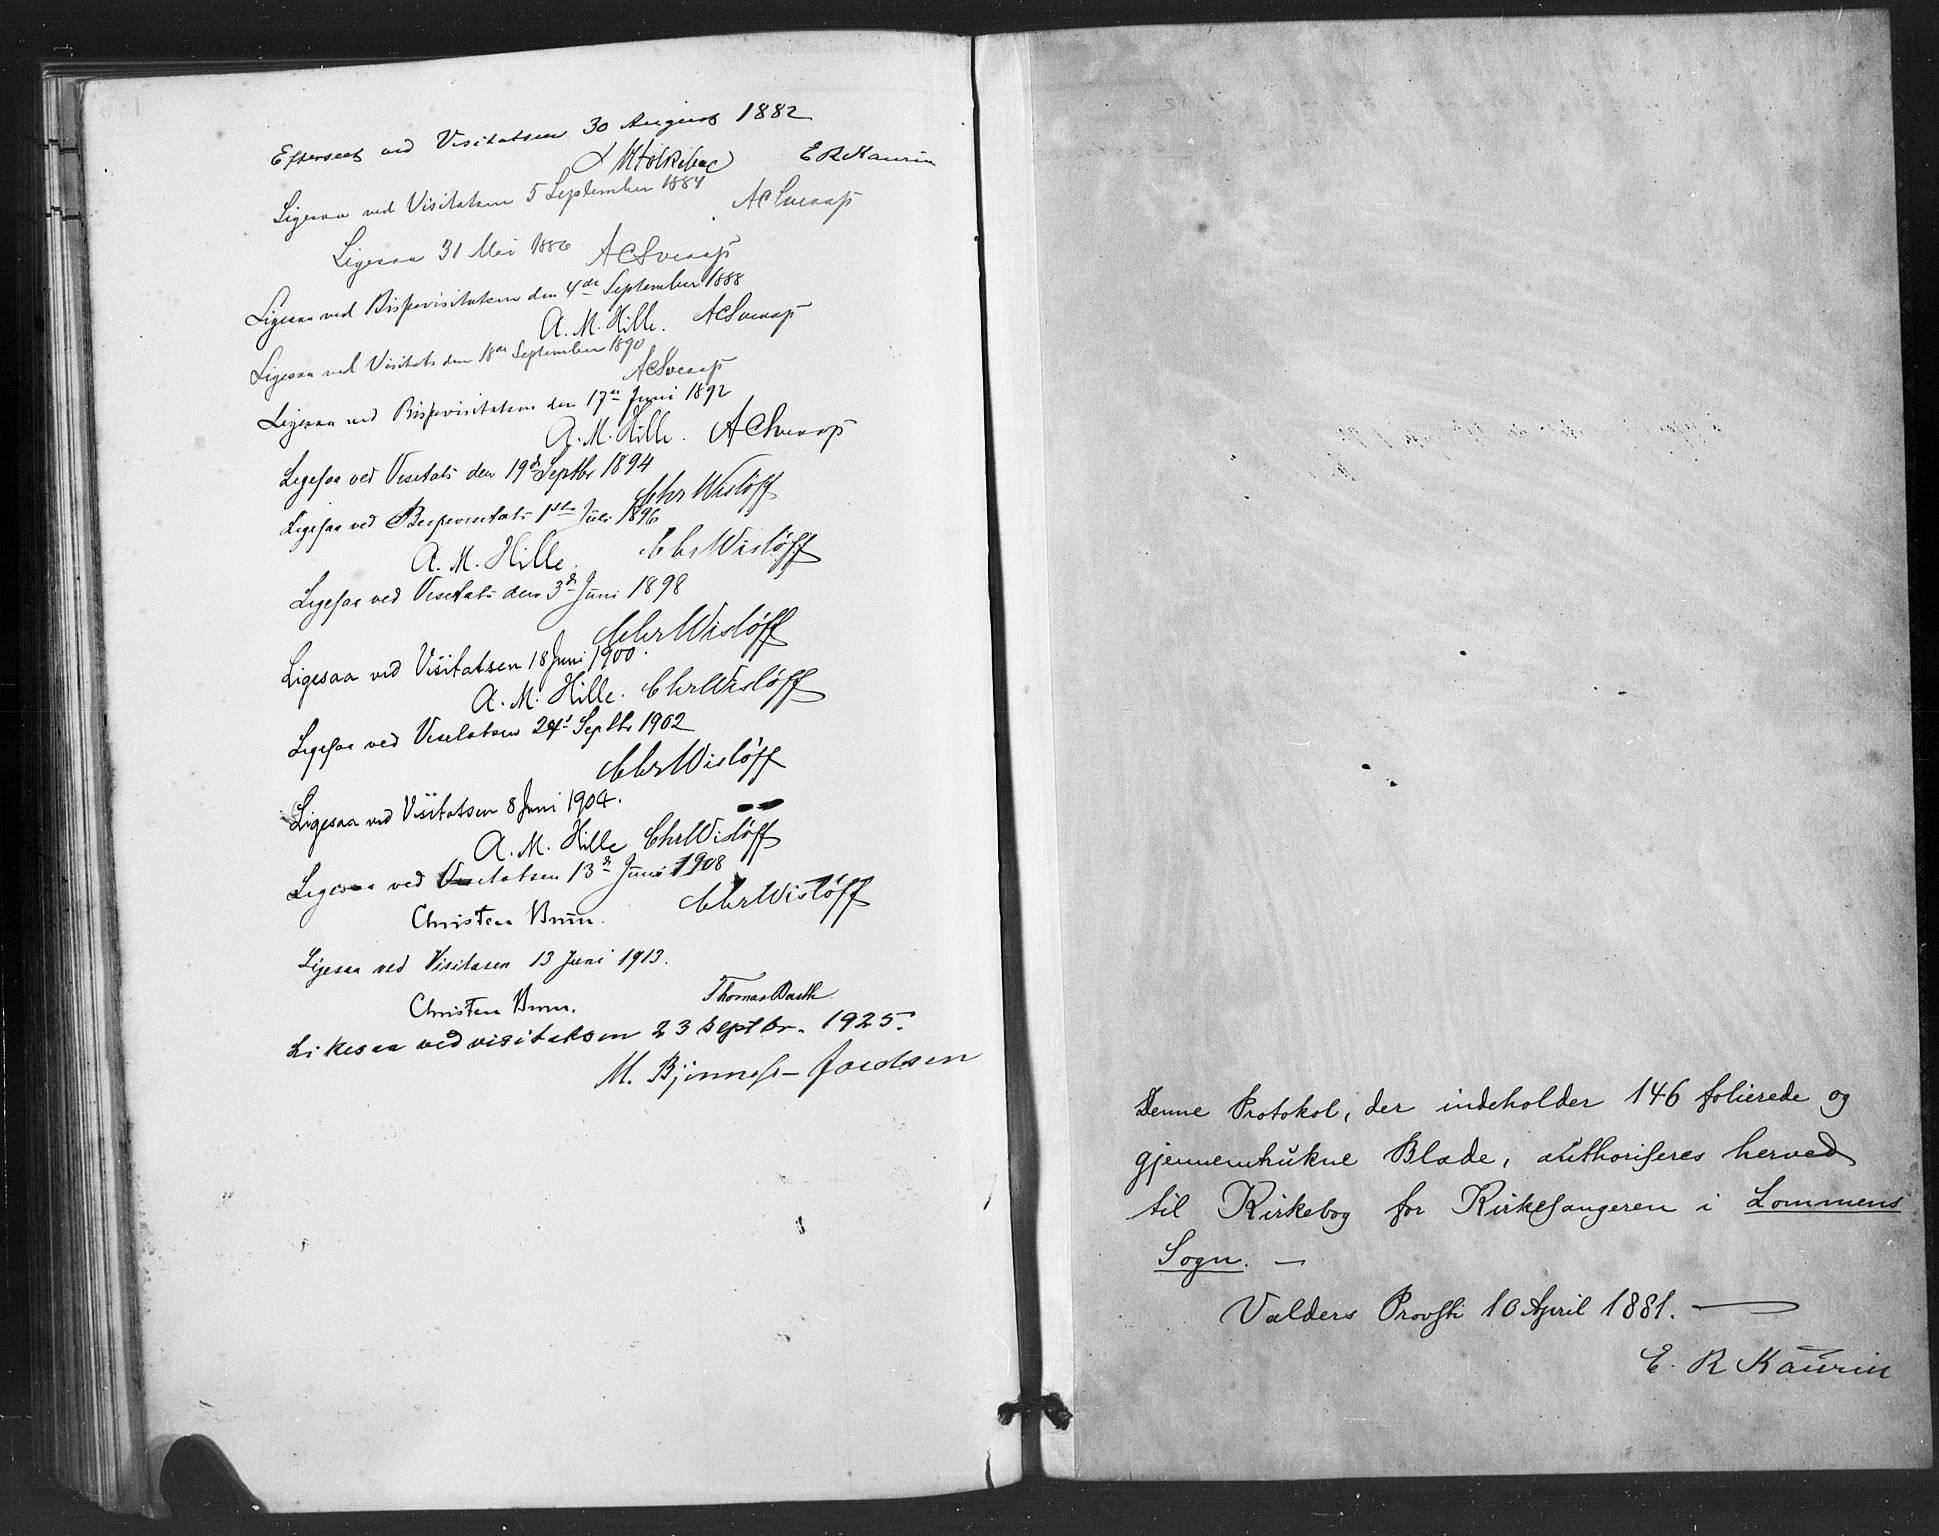 Efterseet ved Visitatsen 30 August 1882
E R Kaurin
Ligesaa ved Visitatsen 5 September 1884
A C Sveaas
Ligesaa 31 Mai 1886 A C Sveaas
Ligesaa ved Bispevisitatsen den 4de September 1888
A. M. Hille. A C Sveaas
Ligesaa ved Visitats den 18de September 1890
A C Sveaas
Ligesaa ved Bispevisitatsen den 17de Juni 1892
A. M. Hille. A C Sveaas
Ligesaa ved Visitats den 19d Septbr 1894
Chr Wisløff
Ligesaa ved Bispevisitats 1ste Juli 1896
A. M. Hille. Chr Wisløff
Ligesaa ved Visitats den 3d Juni 1898
Chr Wisløff
Ligesaa ved Visitatsen 18 Juni 1900.
A. M. Hille. Chr Wisløff
Ligesaa ved Visitatsen 24d Septbr 1902
Chr Wisløff
Ligesaa ved Visitatsen 8 Juni 1904.
A. M. Hille Chr Wisløff
Ligesaa ved Visitatsen 13d Juni 1908
Christen Brun. Chr Wisløff
Ligesaa ved Visitasen 13 Juni 1913.
Christen Brun. Thomas Barth
Likesaa ved visitatsen 23 septbr. 1925.
M. Bjønness-Jacobsen
Denne Protokol, der indeholder 146 folierede og
gjennemtrukne Blade, authoriseres herved
til Kirkebog for Kirkesangeren i Lommens
Sogn. —
Valders Provsti 10 April 1881. —
E. R Kaurin